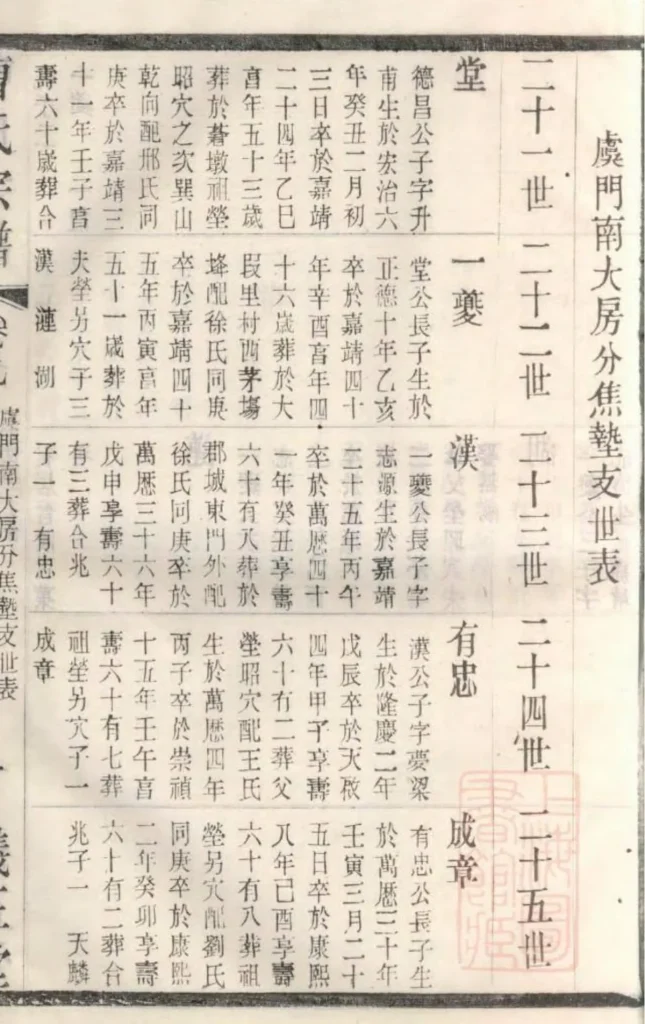 虞門南大房分焦墊支世表
二十一世
二十二世
二十三世
二十四世
二十五世
堂
德昌公子字升
南生於宏治六
年癸丑二月初
三日卒於嘉靖
二十四年乙巳
亯年五十三歲
葬於蒼墩祖塋
昭穴之次巽山
乾向配邢氏同
庚卒於嘉靖三
十一年壬子亯
壽六十歲葬合
一夔
堂公長子生於
正德十年乙亥
卒於嘉靖四十
年辛酉亯年四
十六歲葬於大
叚里村西茅塲
埄配徐氏同庚
卒於嘉靖四十
五年丙寅亯年
五十一歲葬於
夫塋另穴子三
漢 漣 湖
漢
一夔公長子字
志源生於嘉靖
二十五年丙午
卒於萬厯四十
一年癸丑享壽
六十有八葬於
郡城東門外配
徐氏同庚卒於
萬厯三十六年
戊申享壽六十
有三葬合兆
子一 有忠
有忠
漢公子字夢梁
生於隆慶二年
戊辰卒於天啟
四年甲子享壽
六十有二葬父
塋昭穴配王氏
生於萬厯四年
丙子卒於崇禎
十五年壬午亯
壽六十有七葬
祖塋另穴子一
成章
成章
有忠公長子生
於萬厯三十年
壬寅三月二十
五日卒於康熙
八年己酉享壽
六十有八葬祖
塋另穴配劉氏
同庚卒於康熙
二年癸卯享壽
六十有二葬合
兆子一 天麟
氏宗譜
虞門南大房分焦墊支世表
一